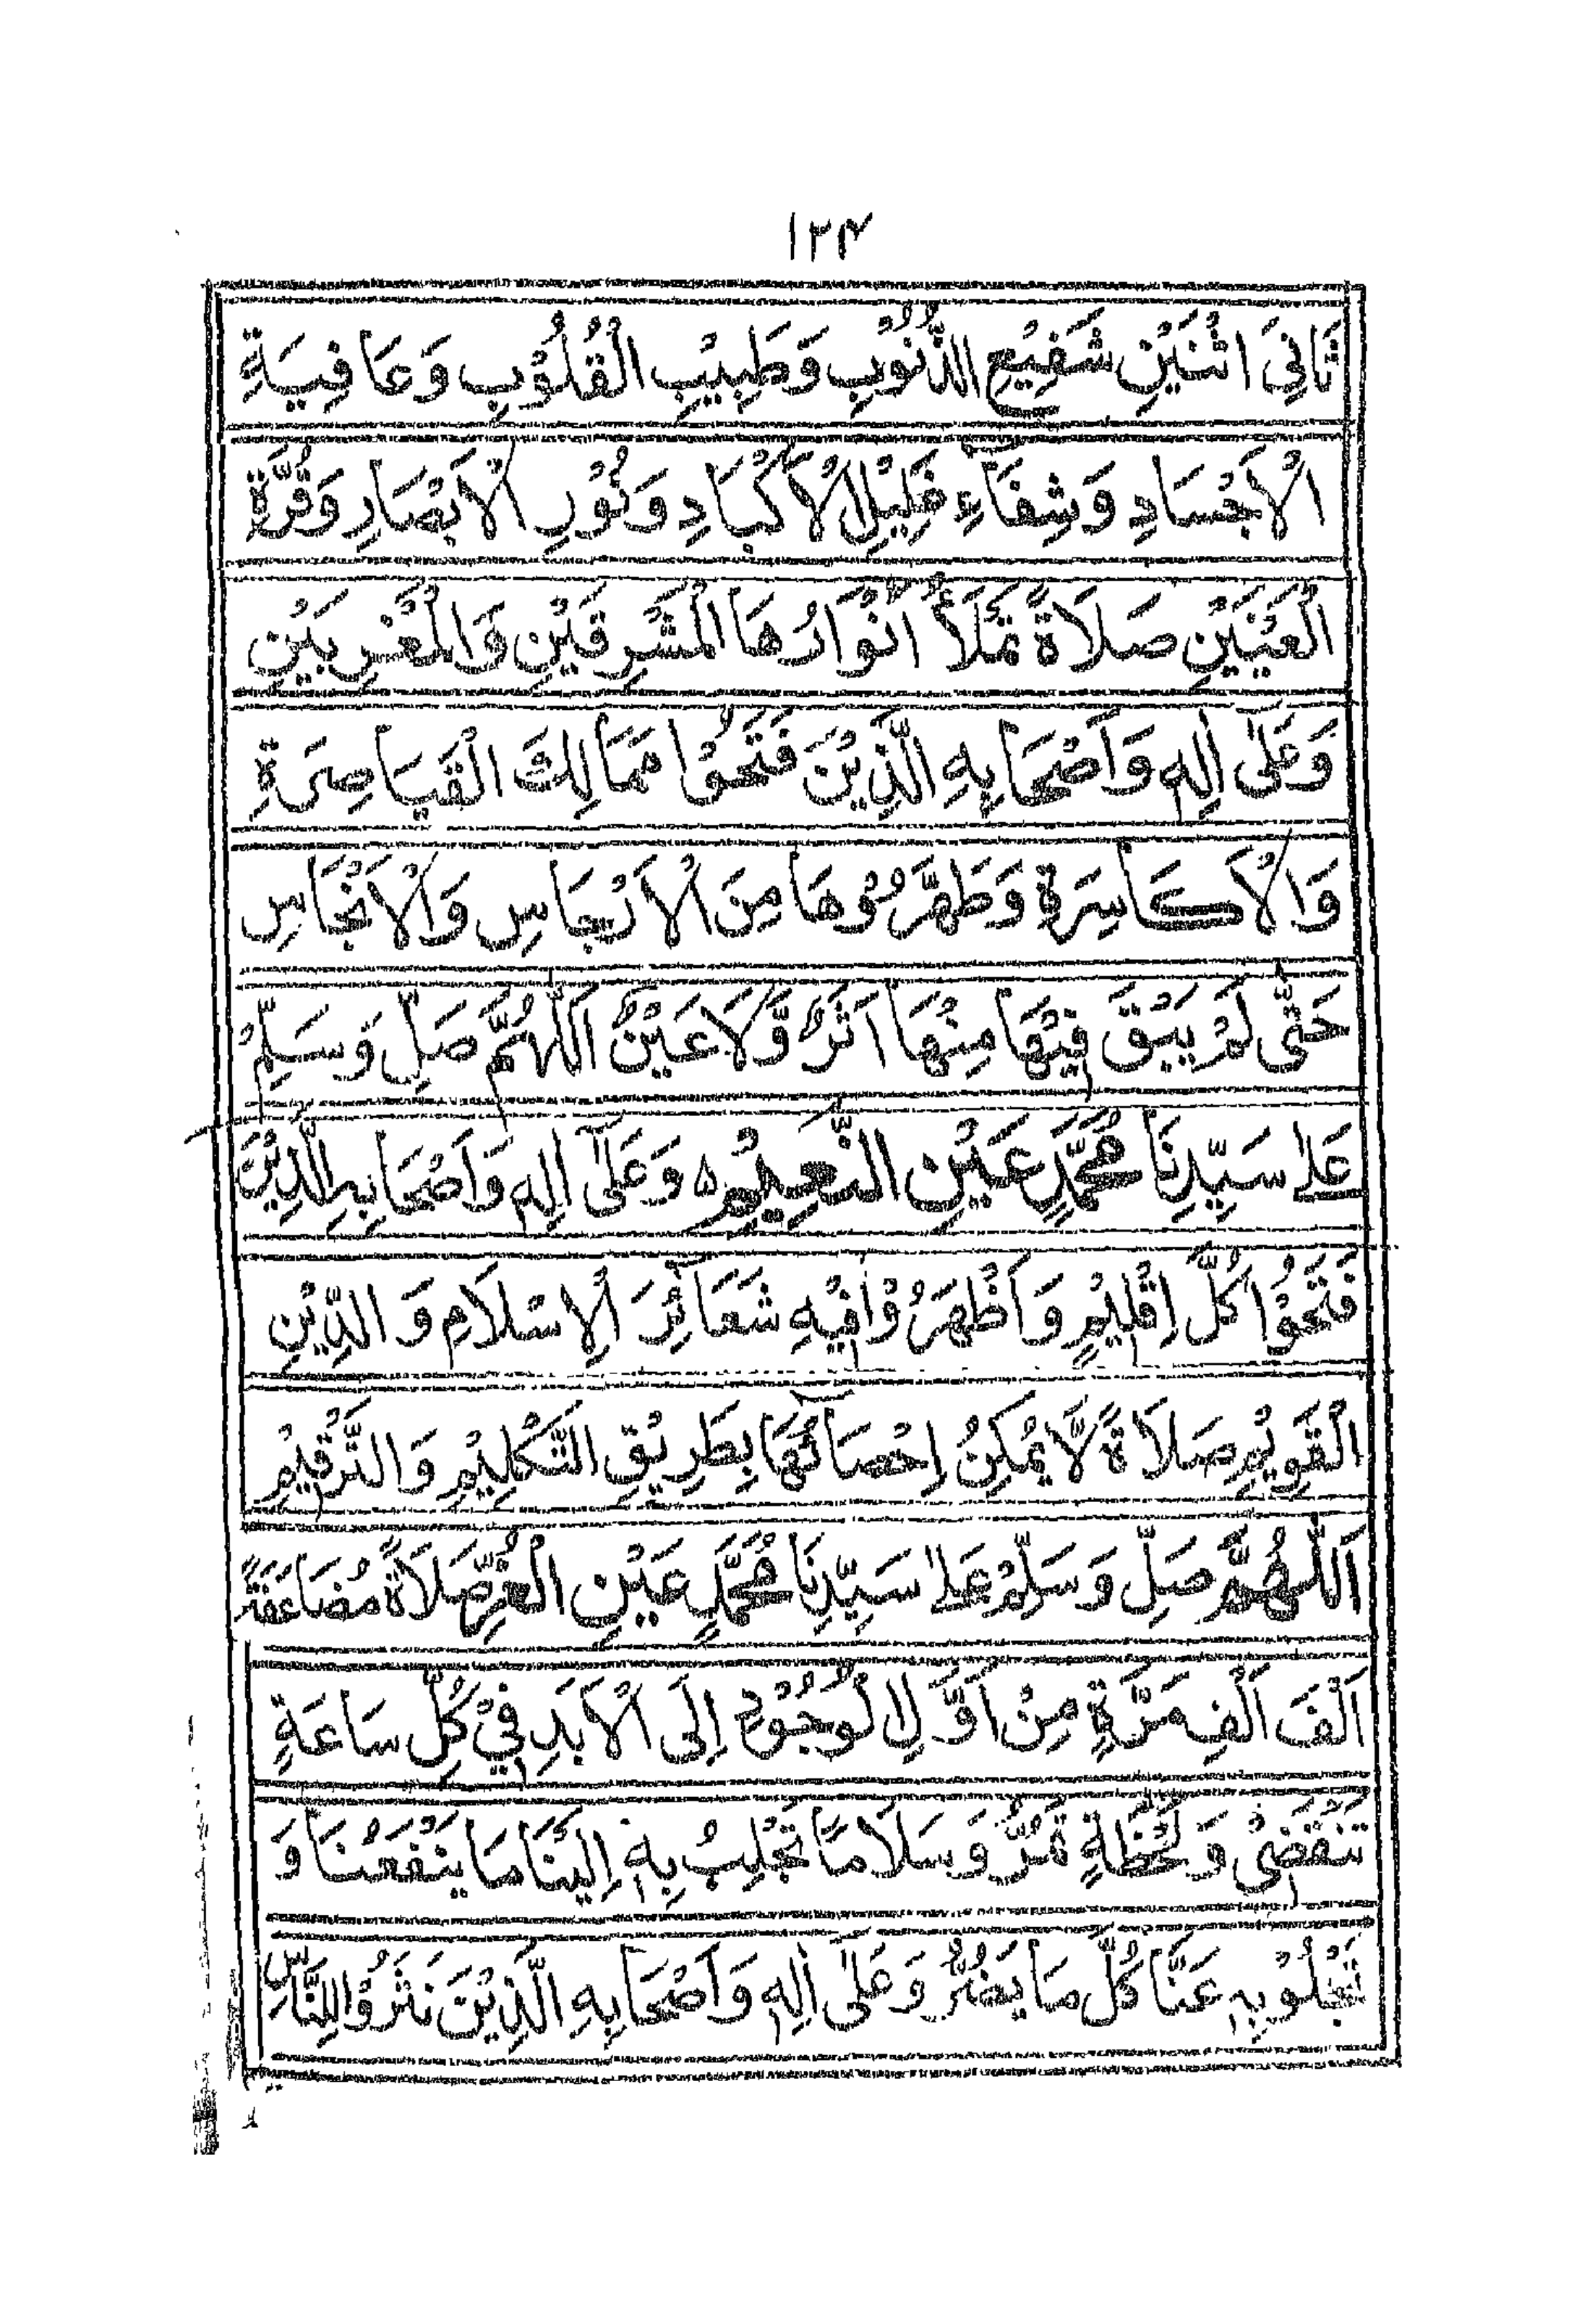 ١٢٣
ثَانِيَ اثْنَيْنِ شَفِيْعِ الذُّنُوْبِ وَطَبِيْبِ الْقُلُوْبِ وَعَافِيَةِ
الْاَجْسَادِ وَشِفَاءِ غَلِيْلِ الْاَكْبَادِ وَنُوْرِ الْاَبْصَارِ وَقُرَّةِ
الْعَيْنَيْنِ صَلَاةً تَمْلَأُ اَنْوَارُهَا الْمَشْرِقَيْنِ وَالْمَغْرِبَيْنِ
وَعَلٰى اٰلِهٖ وَاَصْحَابِهِ الَّذِيْنَ فَتَحُوْا مَمَالِكَ الْقَيَاصِرَةِ
وَالْاَكَاسِرَةِ وَطَهَّرُوْهَا مِنَ الْاَرْجَاسِ وَالْاَنْجَاسِ
حَتّٰى لَمْ يَبْقَ فِيْهَا مِنْهَا اَثَرٌ وَّلَا عَيْنٌ اَللّٰهُمَّ صَلِّ وَسَلِّمْ
عَلٰى سَيِّدِنَا مُحَمَّدٍ عَيْنِ النَّعِيْمِ ه وَعَلٰى اٰلِهٖ وَاَصْحَابِهِ الَّذِيْنَ
فَتَحُوْا كُلَّ اِقْلِيْمٍ وَاَظْهَرُوْا فِيْهِ شَعَائِرَ الْاِسْلَامِ وَالدِّيْنِ
الْقَوِيْمِ صَلَاةً لَّا يُمْكِنُ اِحْصَائُهَا بِطَرِيْقِ التَّكْلِيْمِ وَالتَّرْقِيْمِ
اَللّٰهُمَّ صَلِّ وَسَلِّمْ عَلٰى سَيِّدِنَا مُحَمَّدٍ عَيْنِ الْعِزِّ صَلَاةً مُضَاعَفَةً
اَلْفَ اَلْفِ مَرَّةٍ مِنْ اَوَّلِ الْوُجُوْدِ اِلَى الْاَبَدِ فِيْ كُلِّ سَاعَةٍ
تَنْقَضِيْ وَلَحْظَةٍ تَمُرُّ وَسَلَامًا تَجْلِبُ بِهٖ اِلَيْنَا مَا يَنْفَعُنَا وَ
تَجْلُوْ بِهٖ عَنَّا كُلَّ مَا يَضُرُّ وَعَلٰى اٰلِهٖ وَاَصْحَابِهِ الَّذِيْنَ نَثَرُوْا لِلنَّاسِ